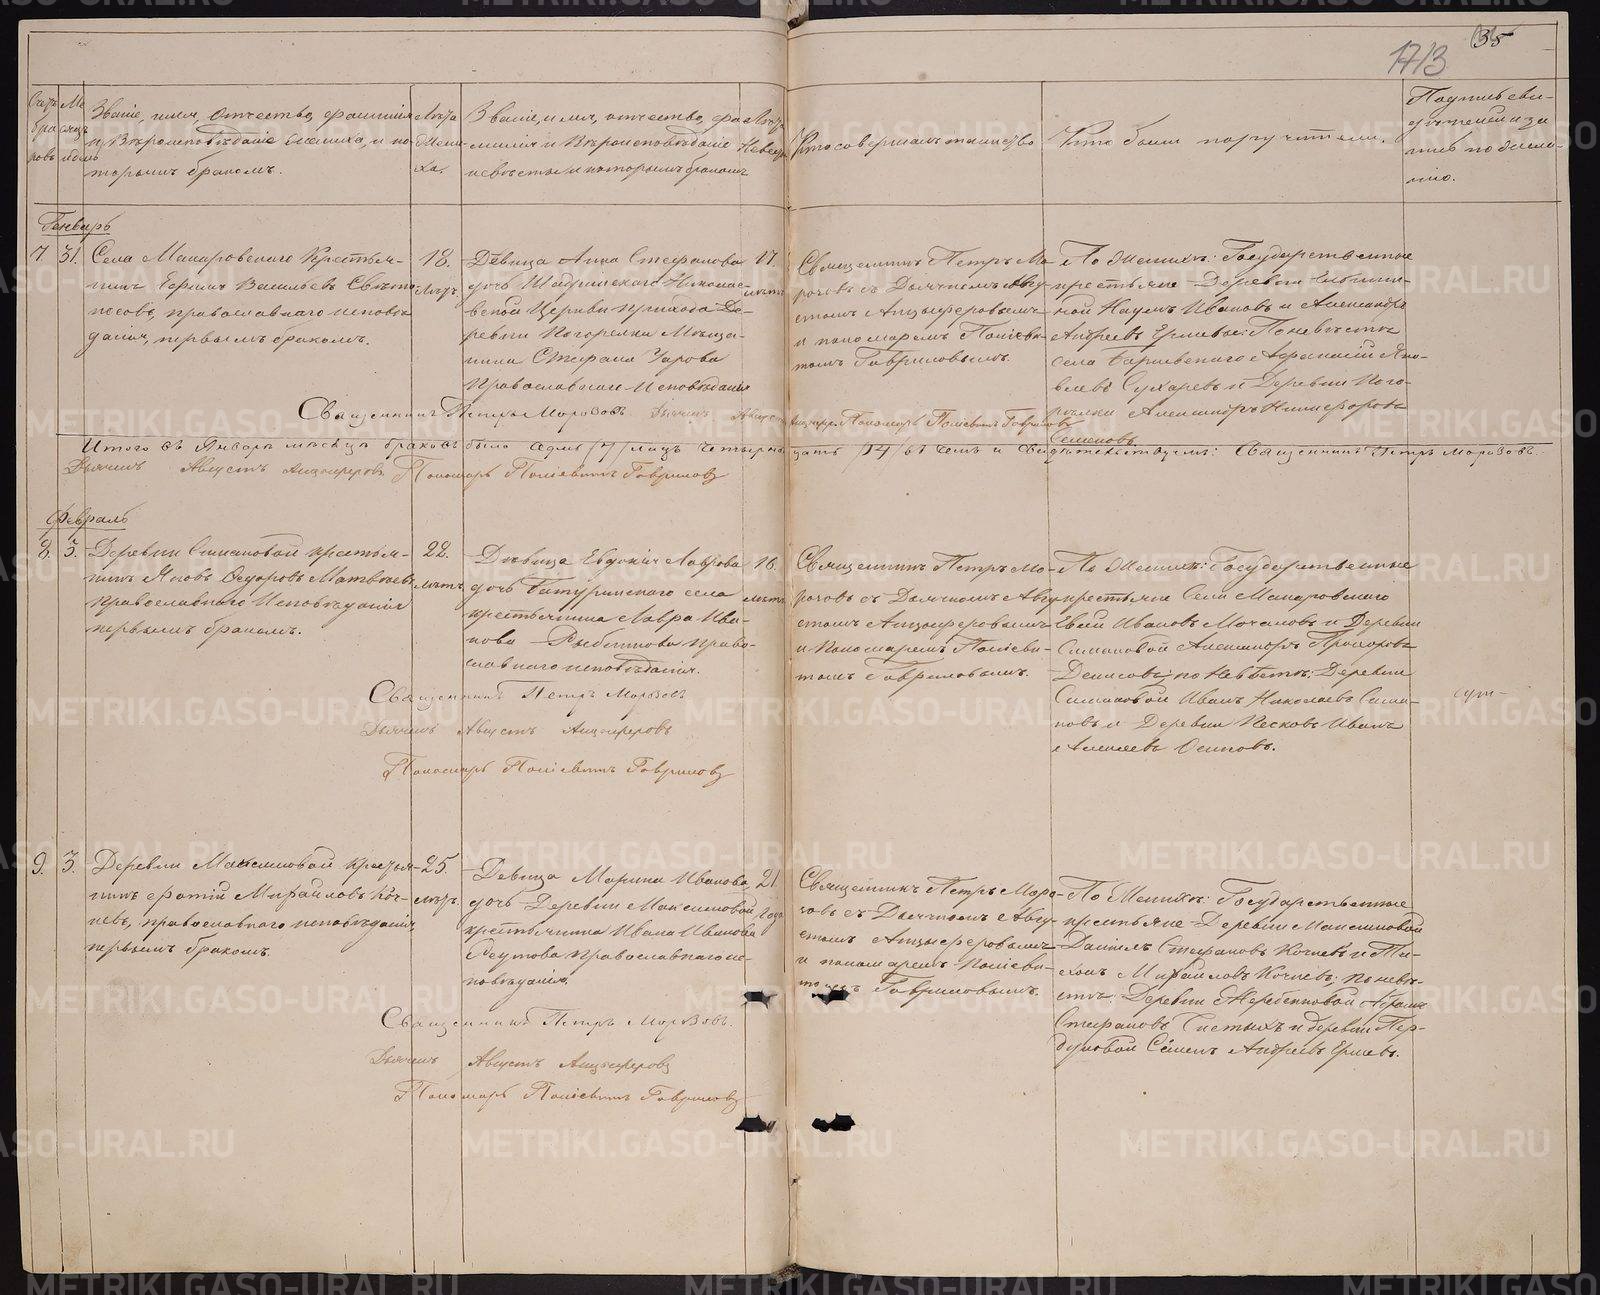 1713
35
Счетъ браковъ
Месяцъ и день
Званіе, имя, отчество, фамилія
и Вѣроисповѣданіе жениха, и ко-
торымъ бракомъ.
Лѣта
Жени-
ха.
Званіе, имя, отчество, фа-
милія и Вѣроисповѣданіе
невѣсты и которымъ бракомъ
Лѣта
Невесты
Кто совершалъ таинство
Кто были поручители.
Подпись сви-
дѣтелей и за
пись по жела-
нію.
Генварь
7.
31.
Села Макаровскаго Крестья-
нинъ Ефимъ Васильевъ
православнаго исповѣ
данія, первымъ бракомъ.
18.
лѣтъ.
Дѣвица Анна Стефанова
дочь Шадринскаго Николае-
вской Церкви Прихода Де-
ревни Погорелки Мѣща-
нина Стефана
Православнаго Исповѣданія
17.
лѣтъ
Священникъ Петръ Мо-
розовъ съ Дьячкомъ Авгу-
стомъ Анцыферовымъ
и пономаремъ Поліевк-
томъ Гавриловымъ.
По Женихѣ: Государственные
крестьяне Деревни
Наумъ Ивановъ и Александръ
Андреевъ Ершевы: По невѣстѣ
села Барневскаго Афанасій Яко-
влевъ Сухаревъ и Деревни Пого-
рѣлки Александръ Никифоровъ
Семеновъ
Священникъ Петръ Морозовъ. Дьячекъ Августъ Анцыферовъ Пономарь Поліевктъ Гавриловъ
Итого въ Январѣ мѣсяцѣ браковъ было седмь /7/ лицъ четырнадцать /14/ въ чемъ и свидѣтельствуемъ: Священникъ Петръ Морозовъ.
Дьячекъ Августъ Анцыферовъ Пономарь Поліевктъ Гавриловъ
Февраль
8.
3.
Деревни Симаковой крестья-
нинъ Яковъ Федоровъ Матвѣевъ
Православнаго Исповѣданія
первымъ бракомъ.
22.
лѣтъ.
Дѣвица Евдокія Лаврова
дочь Батуринскаго села
крестьянина Лавра Ива-
нова Рыбникова право-
славнаго исповѣданія.
16.
лѣтъ
Священникъ Петръ Мо-
розовъ съ Дьячкомъ Авгу-
стомъ Анцыферовымъ
и Пономаремъ Поліевк-
томъ Гавриловымъ.
По Женихѣ: Государственные
крестьяне Села Макаровскаго
Ивановъ Мочаловъ и Деревни
Симаковой Александръ Прохоровъ
Денисовъ; по Невѣстѣ: Деревни
Симаковой Иванъ Николаевъ Сима-
ковъ и Деревни Песковъ Иванъ
Алексеевъ Осиповъ.
Священникъ Петръ Морозовъ
Дьячекъ Августъ Анцыферовъ
Пономарь Поліевктъ Гавриловъ
9.
3.
Деревни Максимовой крестья-
нинъ Фотій Михайловъ Коч-
невъ, православнаго исповѣданія,
первымъ бракомъ.
25.
лѣтъ.
Девица Марина Иванова,
дочь Деревни Максимовой
крестьянина Ивана Иванова
Реутова Православнаго ис-
повѣданія.
21.
года
Священникъ Петръ Моро-
зовъ съ Дьячкомъ Авгу-
стомъ Анцыферовымъ
и пономаремъ Поліевк-
томъ Гавриловымъ.
По Женихѣ: Государственные
крестьяне Деревни Максимовой
Даніилъ Стефановъ Кочневъ и Ти-
хонъ Михайловъ Кочневъ; по невѣ-
стѣ: Деревни Жеребенковой
Стефановъ Чистыхъ и деревни Пер-
дуновой Семенъ Андреевъ Ершевъ.
Священникъ Петръ Морозовъ.
Дьячекъ Августъ Анцыферовъ
Пономарь Поліевктъ Гавриловъ
METRIKI.GASO-URAL.RU